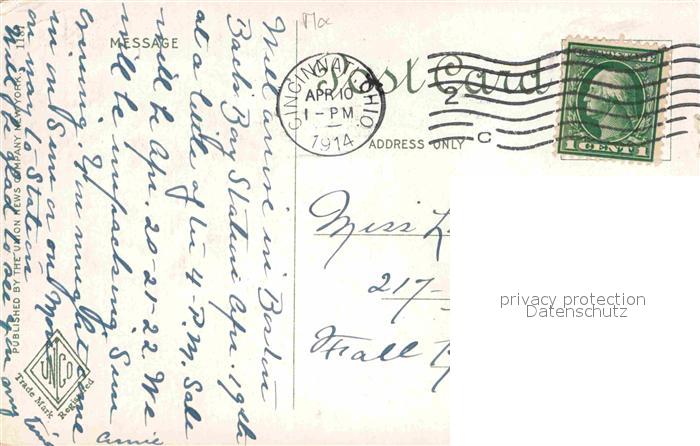 1181
PUBLISHED BY THE UNION NEWS COMPANY, NEW YORK
MESSAGE
Post Card
ADDRESS ONLY
CINCINNATI, OHIO
APR 10
1-PM
1914
2
C
1 CENT 1
Will arrive in Boston
Back Bay Station Apr. 19th
at a little after 4-P.M. Sale
will be Apr. 20-21-22. We
will be unpacking Sun
evening. You might come
in on Sun or on Mon
on way to Station
Will be glad to see you any
time
Annie
Miss L.
217-
Fall
UNCO
Trade Mark Registered
privacy protection
Datenschutz